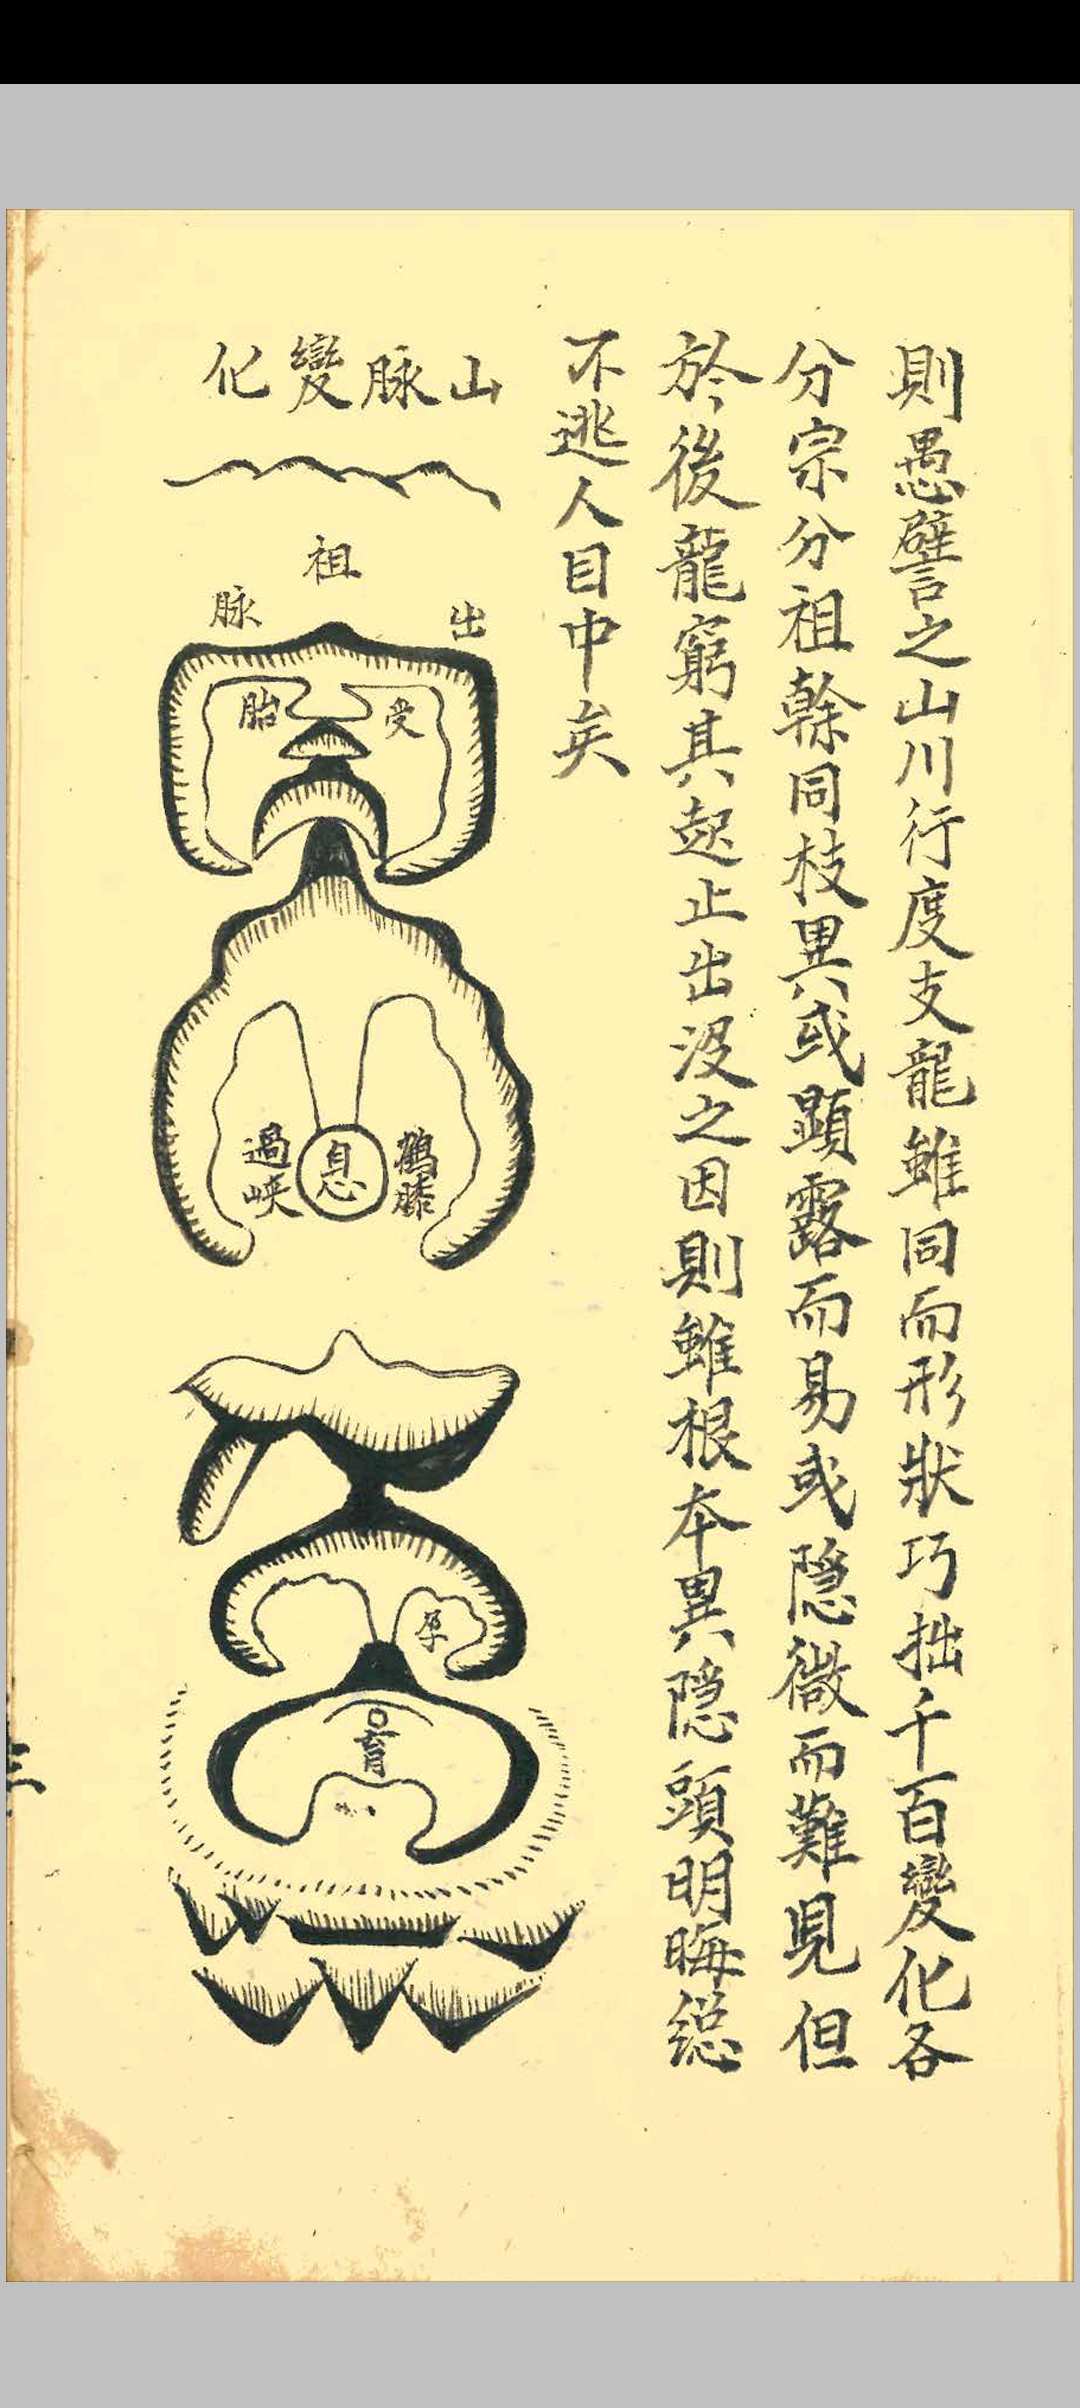 則愚譬言之山川行度支龍雖同而形狀巧拙千百變化各
分宗分祖榦同枝異或顯露而易或隱微而難見但
於後龍窮其起止出没之因則雖根本異隱頭明晦総
不逃人目中矣
山脉變化
祖
出脉
受胎
鶴膝
息
過峽
孕
育
三